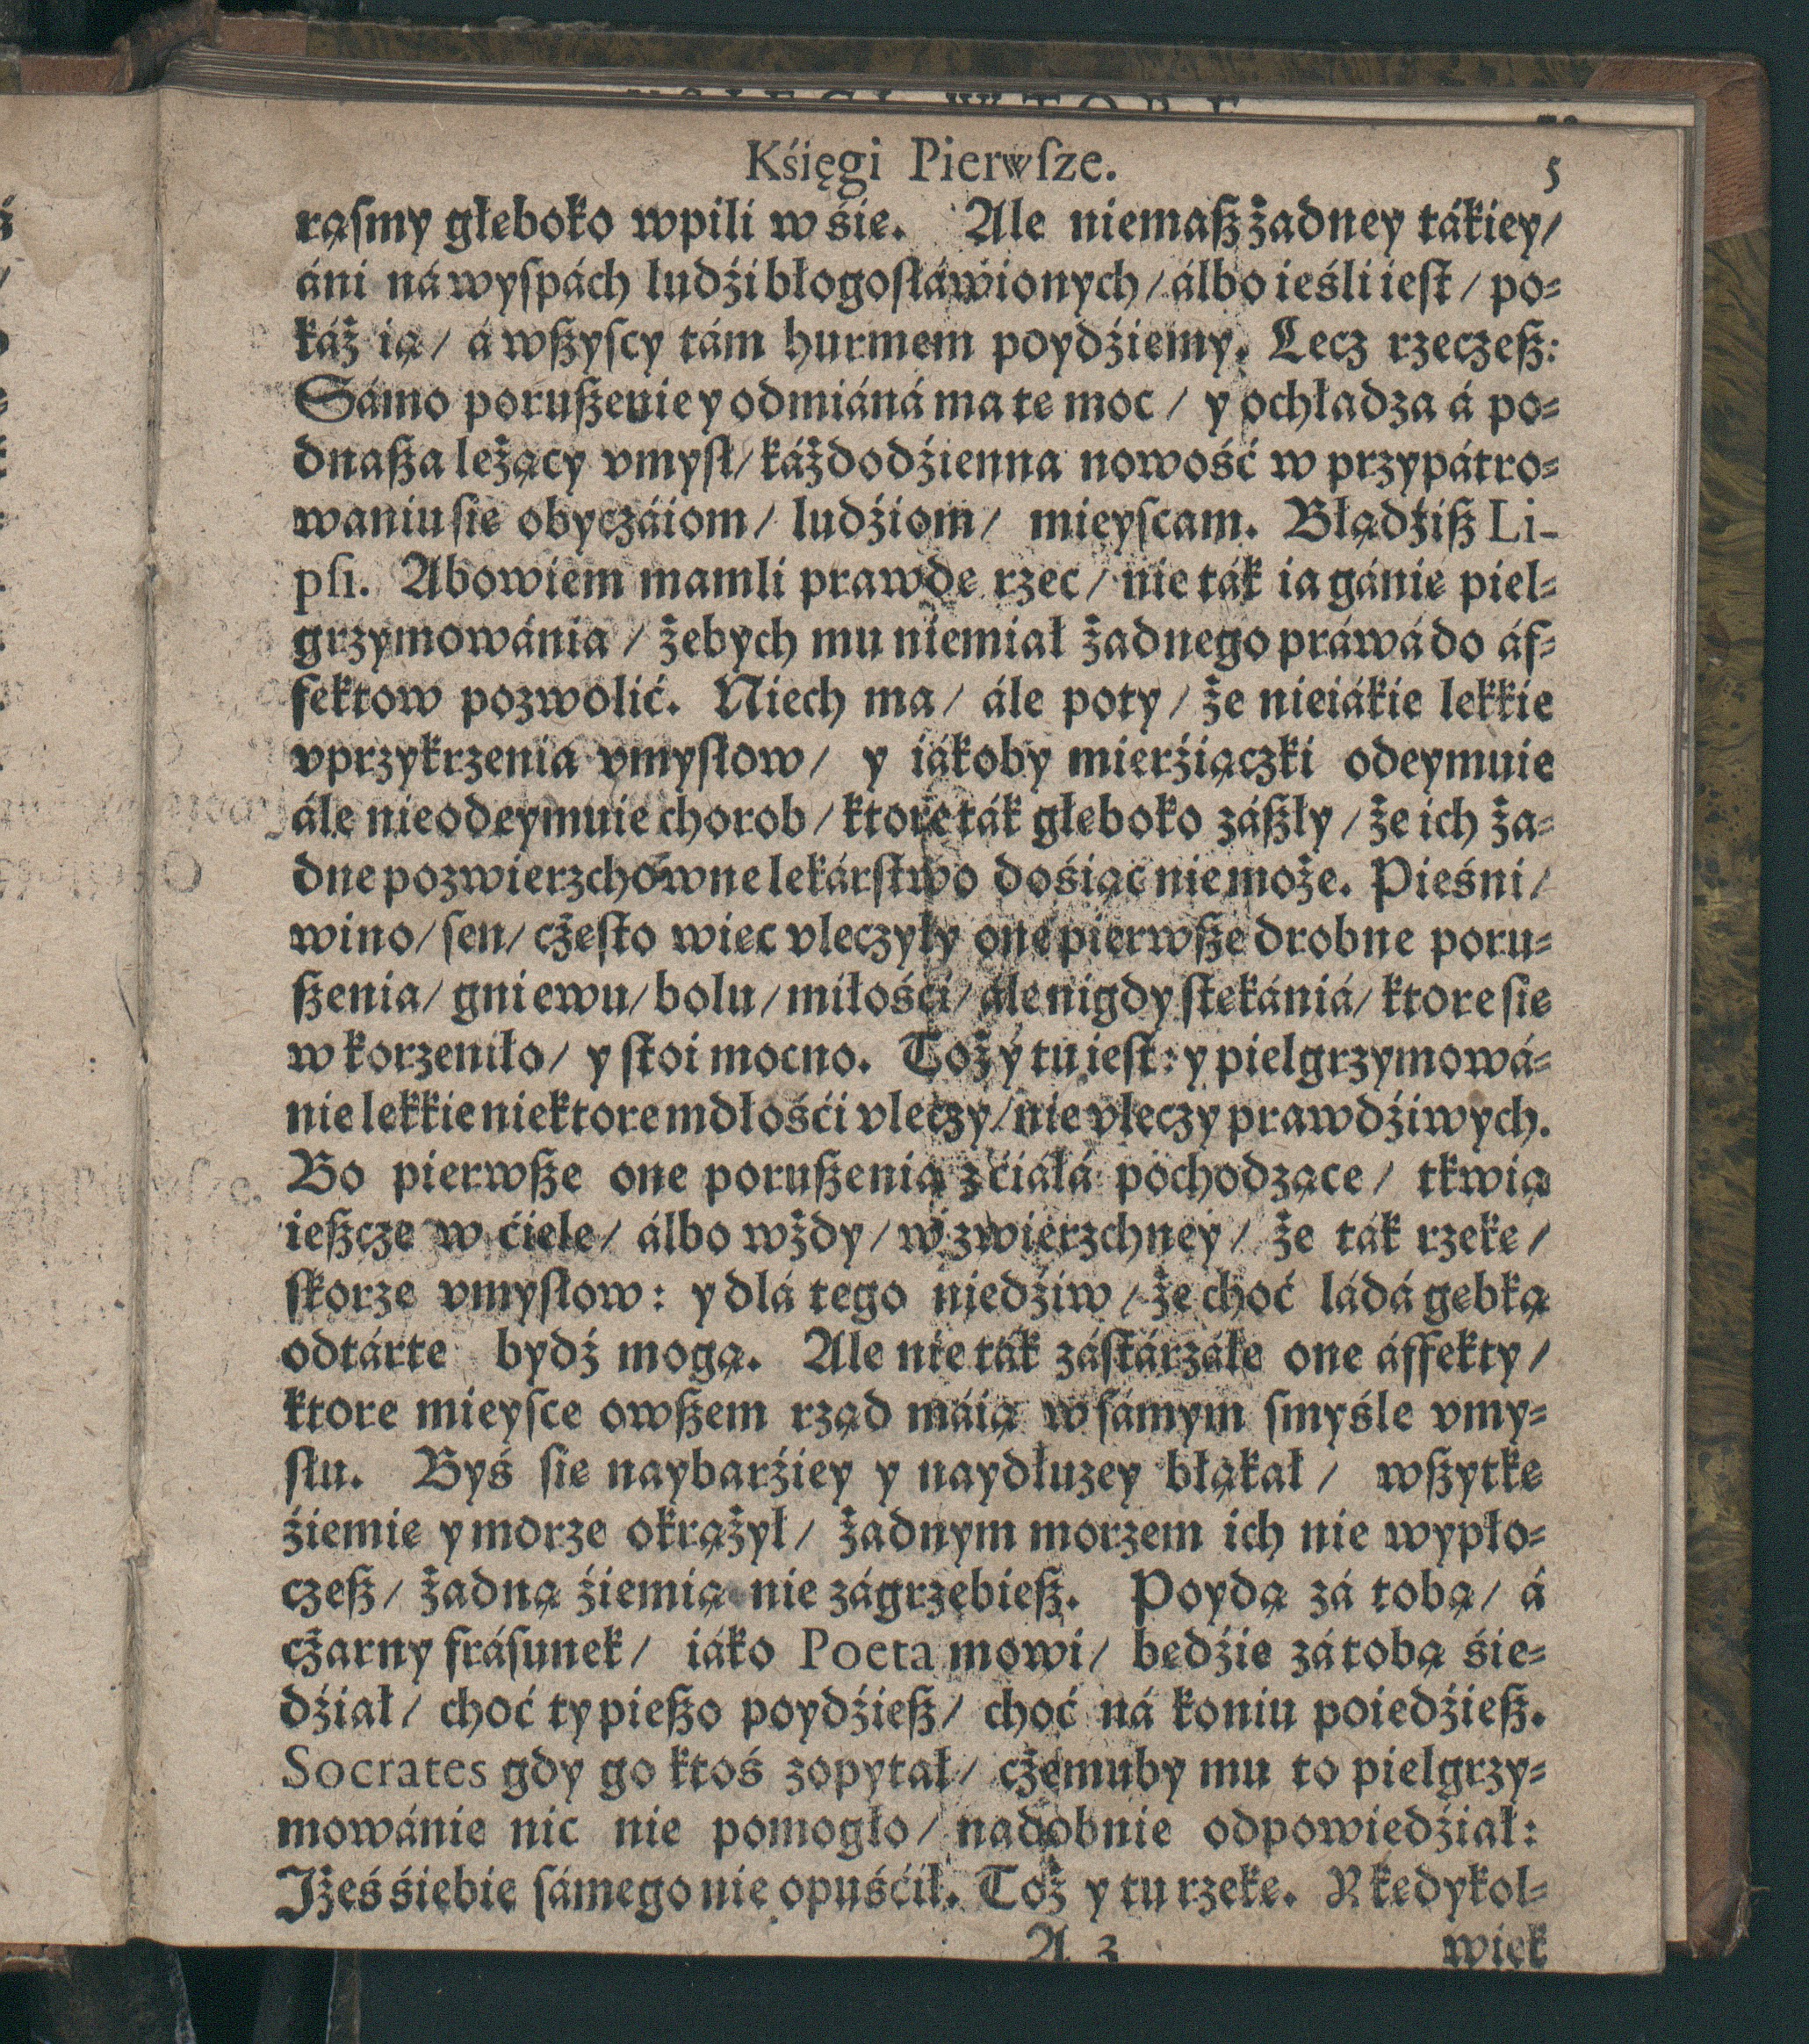 Kśięgi Pierwſze. 5
rąſmy głeboko wpili w śie. Ale niemaß żadney tákiey/
áni ná wyſpách ludźi błogosłáwionych/ álbo ieśli ieſt/ po-
káż ią/ á wßyſcy tám hurmem poydźiemy. Lecz rzeczeß:
Sámo porußenie y odmiáná ma te moc/ y ochładza á po-
dnaßa leżący vmysł/ káżdodźienna nowość w przypátro-
waniu sie obyczáiom/ ludźiom/ mieyſcam. Błądźiß Li-
pſi. Abowiem mamli prawde rzec/ nie ták ia gánie piel-
grzymowánia/ żebych mu niemiał żadnego práwá do áf-
fektow pozwolić. Niech ma/ ále poty/ że nieiákie lekkie
vprzykrzenia vmysłow/ y iákoby mierźiączki odeymuie
ále nieodeymuie chorob/ ktore ták głeboko záßły/ że ich ża-
dne pozwierzchowne lekárſtwo dośiąc niemoże. Pieśni/
wino/ ſen/ cżeſto wiec vleczyły one pierwße drobne poru-
ßenia/ gniewu/ bolu/ miłośći/ ále nigdy ſtekániá/ ktore sie
wkorzeniło/ y ſtoi mocno. Toż y tu ieſt: y pielgrzymowá-
nie lekkie niektore mdłośći vleczy/ nie vleczy prawdźiwych.
Bo pierwße one porußenia z ćiáłá pochodzące/ tkwią
ießcze w ćiele/ álbo wżdy/ w zwierzchney/ że ták rzeke/
ſkorze vmysłow: y dlá tego niedźiw/ że choć ládá gebką
odtárte bydź mogą. Ale nie ták záſtárzáłe one áffekty/
ktore mieyſce owßem rząd máią w ſámym ſmyśle vmy-
słu. Byś sie naybarźiey y naydłuzey błąkał/ wßytke
źiemie y morze okrążył/ żadnym morzem ich nie wypło-
czeß/ żadną źiemią nie zágrzebieß. Poydą zá tobą/ á
cżarny fráſunek/ iáko Poeta mowi/ bedźie zá tobą śie-
dźiał/ choć ty pießo poydźieß/ choć ná koniu poiedźieß.
Socrates gdy go ktoś zopytał/ cżemuby mu to pielgrzy-
mowánie nic nie pomogło/ nadobnie odpowiedźiał:
Jżeś śiebie ſámego nie opuśćił. Toż y tu rzeke. Kkedykol-
A 3 wiek